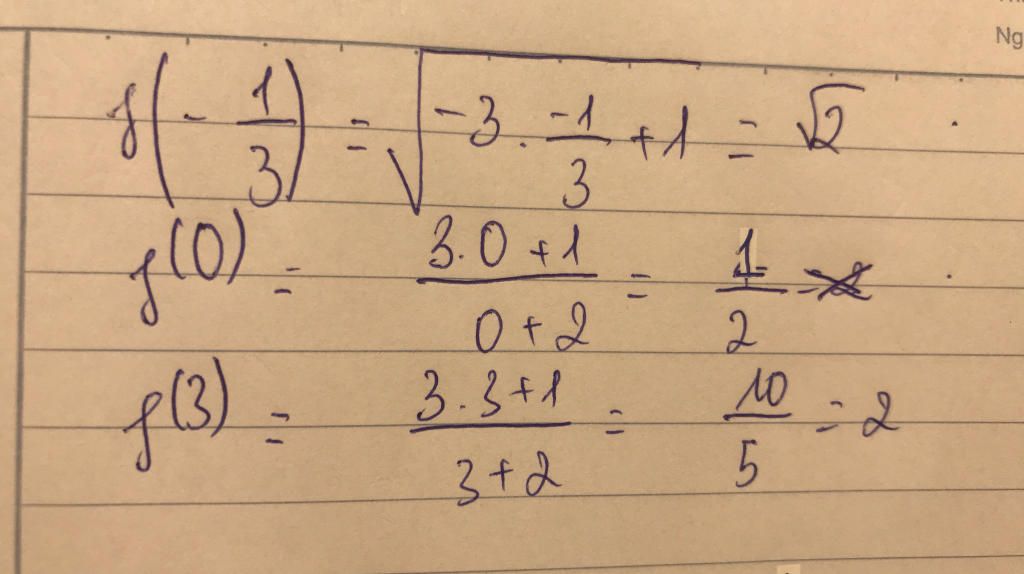 Ng
f(-1/3) = √(-3 . -1/3 + 1) = √2 .
f(0) = (3.0 + 1)/(0 + 2) = 1/2 .
f(3) = (3.3 + 1)/(3 + 2) = 10/5 = 2